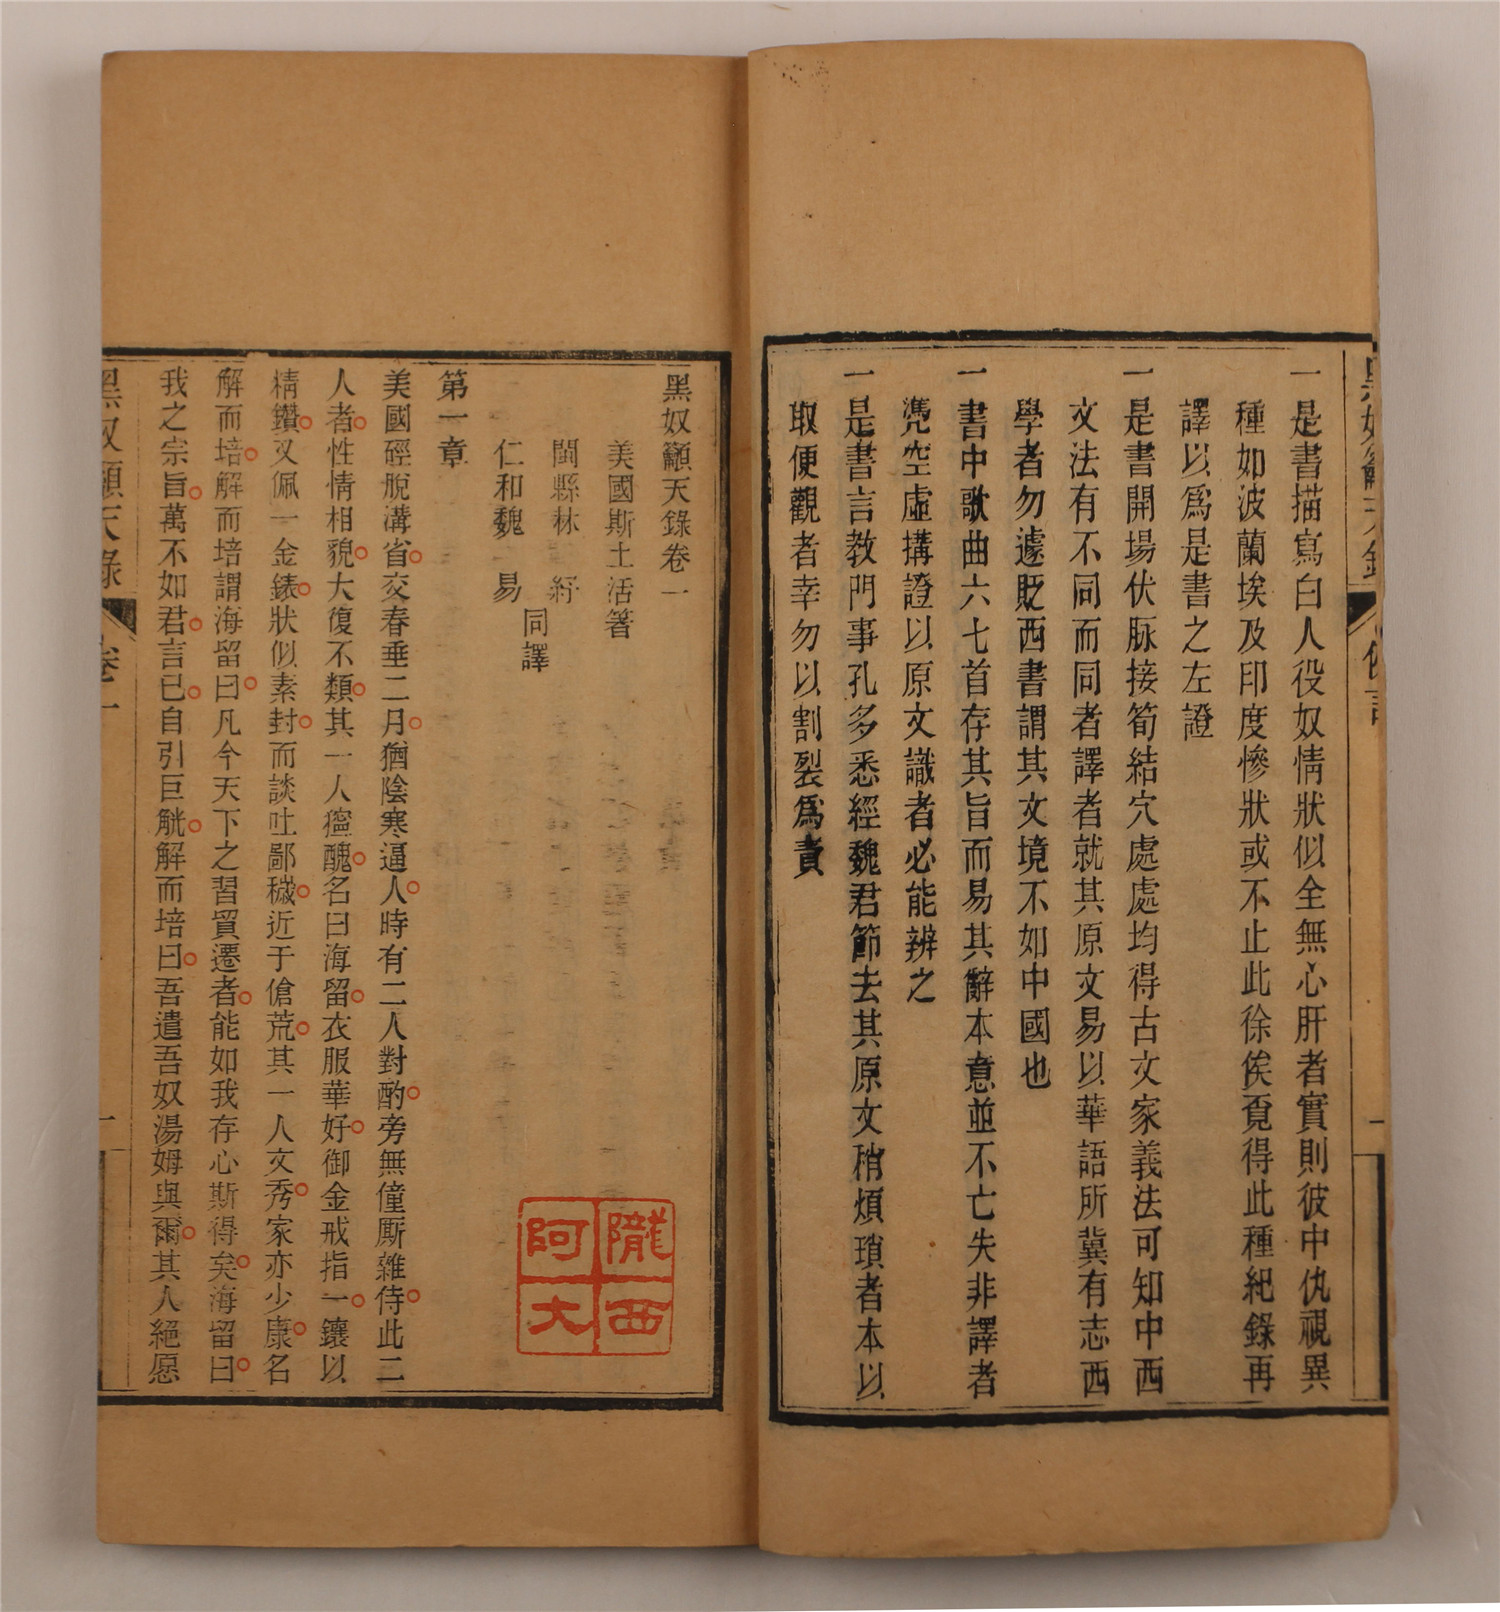 一是書描寫白人役奴情狀似全無心肝者實則彼中仇視異
種如波蘭埃及印度慘狀或不止此徐俟覓得此種紀錄再
譯以爲是書之左證
一是書開場伏脉接筍結穴處處均得古文家義法可知中西
文法有不同而同者譯者就其原文易以華語所冀有志西
學者勿遽貶西書謂其文境不如中國也
一書中歌曲六七首存其旨而易其辭本意並不亡失非譯者
憑空虛搆證以原文識者必能辨之
一是書言教門事孔多悉經魏君節去其原文稍煩瑣者本以
取便觀者幸勿以割裂爲責
黑奴籲天錄卷一
美國斯土活箸
閩縣林紓
仁和魏易
同譯
第一章
美國硜脫溝省交春垂二月猶陰寒逼人時有二人對酌旁無僮厮雜侍此二
人者性情相貌大復不類其一人獰醜名曰海留衣服華好御金戒指一鑲以
精鑽又佩一金錶狀似素封而談吐鄙穢近于傖荒其一人文秀家亦少康名
解而培解而培謂海留曰凡今天下之習貿遷者能如我存心斯得矣海留曰
我之宗旨萬不如君言已自引巨觥解而培曰吾遣吾奴湯姆與爾其人絕愿
黑奴籲天錄
卷一
一
隴西阿大
黑奴籲天錄
例言
一